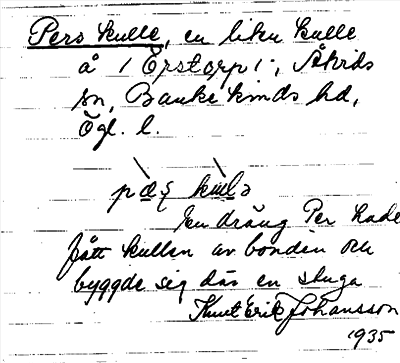 Pers kulle, en liten kulle
å / Örstorp 1:, Åtvids
sn, Bankekinds hd,
Ögl. l.
pæʂ kɯlə
En dräng Per hade
fått kullen av bonden och
byggde sig där en stuga
Knut Erik Johansson
1935